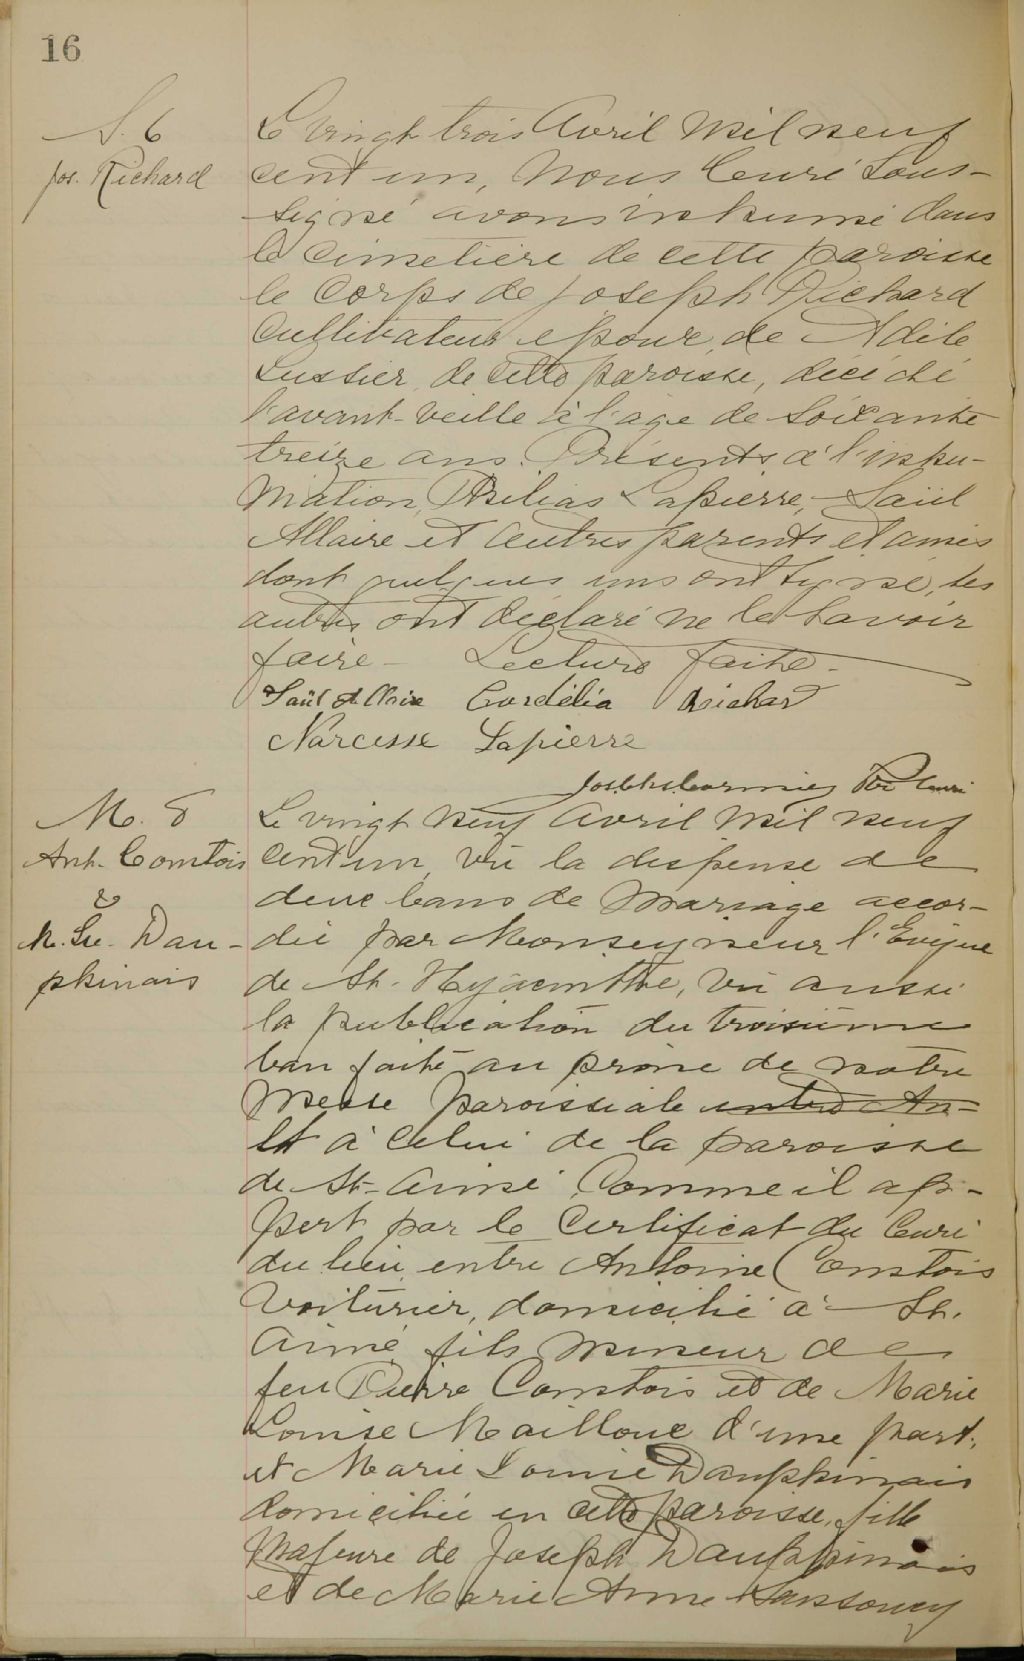 16
S. 6
Jos. Richard
Le vingt trois Avril mil neuf
cent un, Nous Curé sous-
signé avons inhumé dans
le cimetière de cette paroisse
le corps de Joseph Richard
cultivateur époux de Adèle
Lussier de cette paroisse, décédé
l'avant-veille à l'âge de soixante
treize ans. Présents à l'inhu-
mation, Philias Lapierre, Saül
Allaire et autres parents et amis
dont quelques uns ont signé, les
autres ont déclaré ne le savoir
faire - Lecture faite -
Saül Allaire Cordélia Richard
Narcisse Lapierre
Ptre Curé
M. 8
Ant. Comtois
&
M. Ls. Dau-
phinais
Le vingt neuf Avril mil neuf
cent un, vu la dispense de
deux bans de mariage accor-
dée par Monseigneur l'Evêque
de St. Hyacinthe, vu aussi
la publication du troisième
ban faite au prône de notre
messe paroissiale entre An-
et à celui de la paroisse
de St-Aimé Comme il ap-
pert par le certificat du Curé
du lieu, entre Antoine Comtois
Voiturier, domicilié à St.
Aimé, fils mineur de
feu Pierre Comtois et de Marie
Louise Mailloux d'une part,
et Marie Louise Dauphinais
domiciliée en cette paroisse, fille
majeure de Joseph Dauphinais
et de Marie Anne Sanssoucy